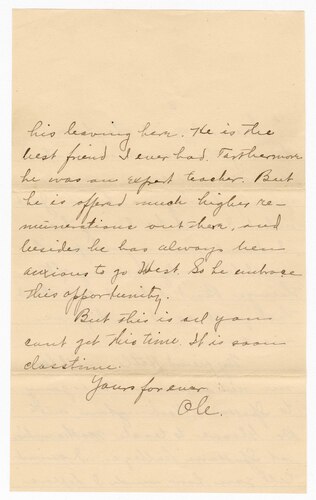 his leaving here. He is the
best friend I ever had. Farthermore
he was an expert teacher. But
he is offered much higher re-
munerations out there, and
besides he has always been
anxious to go West. So he embrace
this opportunity.
But this is all you
cant get this time. It is soon
classtime.
Yours forever
Ole.